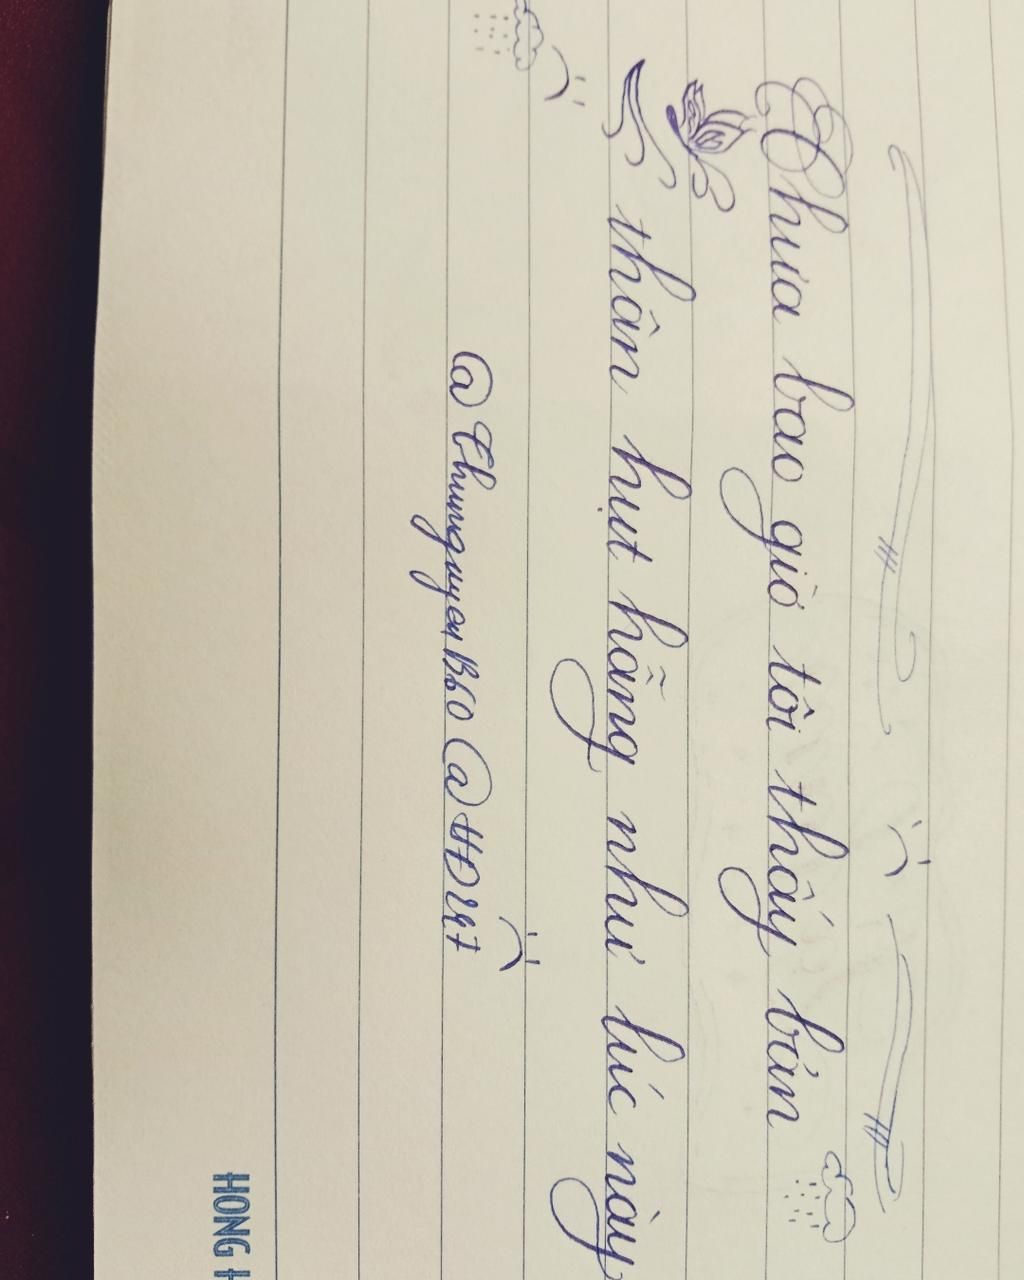 Chưa bao giờ tôi thấy bản
thân hụt hẫng như lúc này
@ThunguyenB60 @HĐ247
HONG H